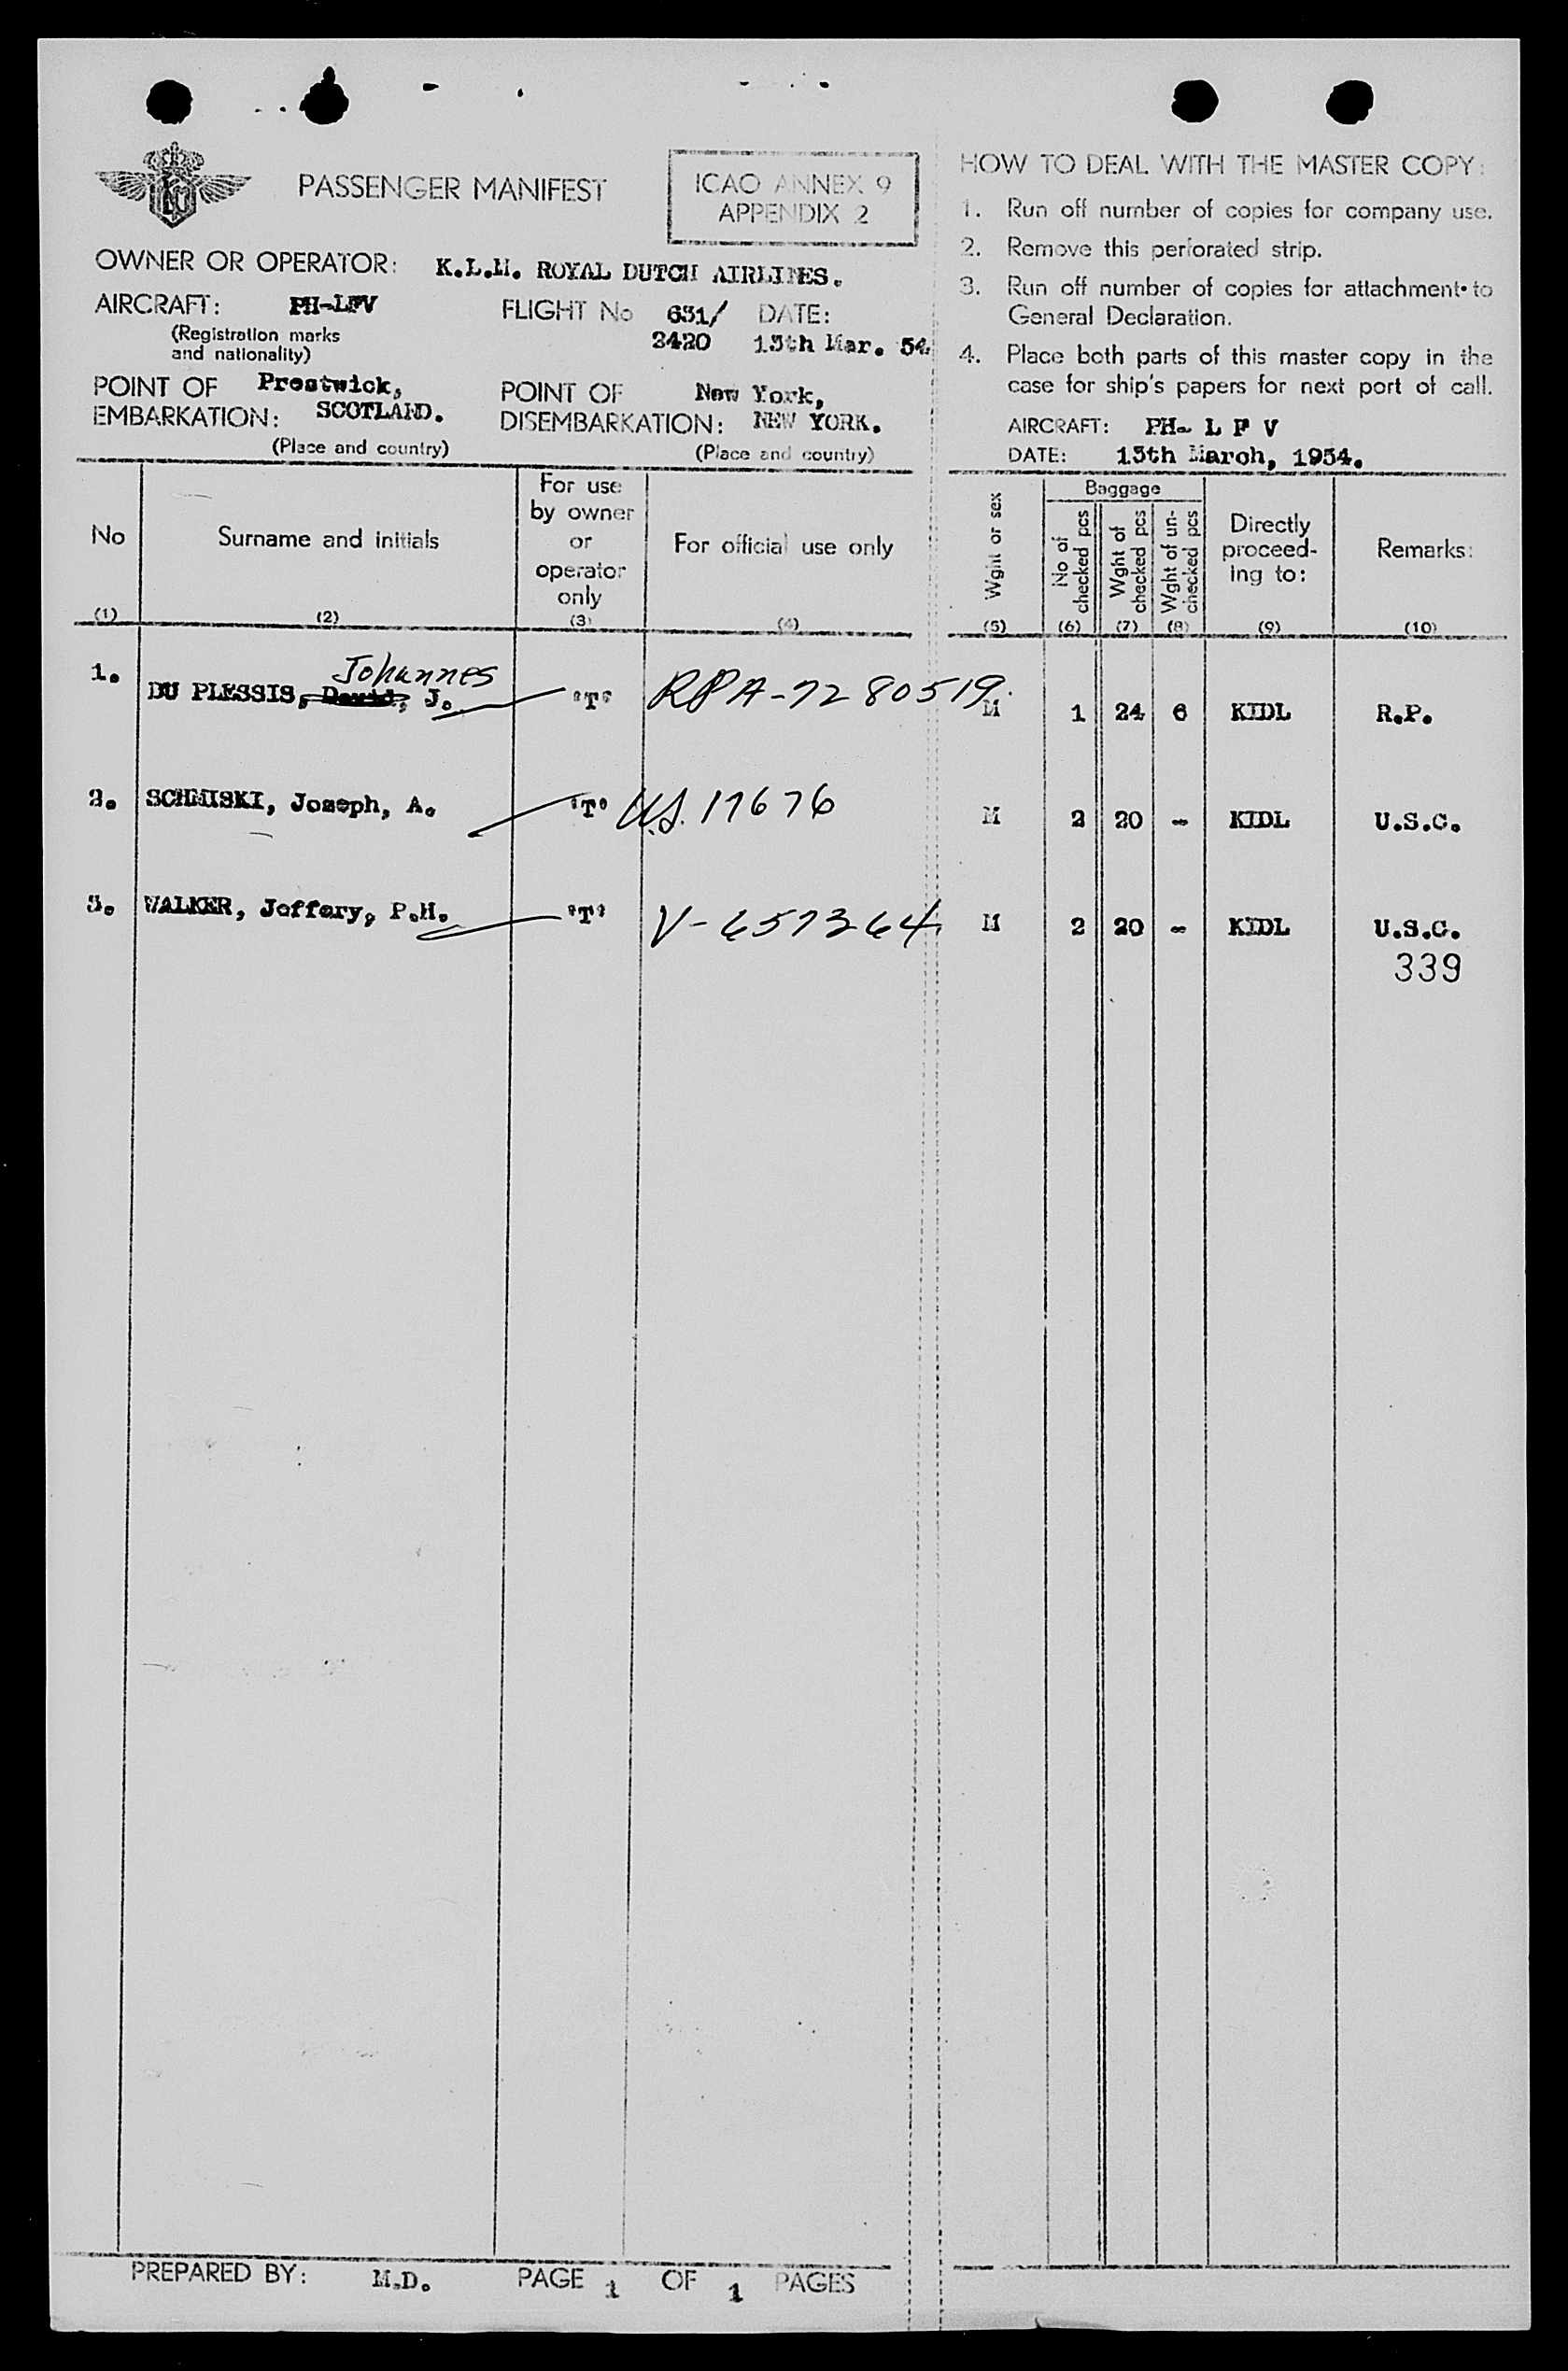 PASSENGER MANIFEST
ICAO ANNEX 9
APPENDIX 2
OWNER OR OPERATOR: K.L.M. ROYAL DUTCH AIRLINES.
AIRCRAFT: PH-LFV
(Registration marks
and nationality)
FLIGHT No 631/
2420
DATE:
13th Mar. 54
POINT OF
EMBARKATION:
Prestwick,
SCOTLAND.
(Place and country)
POINT OF
DISEMBARKATION:
New York,
NEW YORK.
(Place and country)
HOW TO DEAL WITH THE MASTER COPY:
1. Run off number of copies for company use.
2. Remove this perforated strip.
3. Run off number of copies for attachment to
General Declaration.
4. Place both parts of this master copy in the
case for ship's papers for next port of call.
AIRCRAFT: PH- L F V
DATE: 13th March, 1954.
No
(1)
Surname and initials
(2)
For use
by owner
or
operator
only
(3)
For official use only
(4)
Wght or sex
(5)
Baggage
No of
checked pcs
(6)
Wght of
checked pcs
(7)
Wght of un-
checked pcs
(8)
Directly
proceed-
ing to:
(9)
Remarks:
(10)
Johannes
1. DU PLESSIS, David, J. "T" RPA-7280519 M 1 24 6 KIDL R.P.
2. SCHMISKI, Joseph, A. "T" U.S. 17676 M 2 20 - KIDL U.S.C.
3. WALKER, Jeffery, P.H. "T" V-657364 M 2 20 - KIDL U.S.C.
339
PREPARED BY: M.D. PAGE 1 OF 1 PAGES